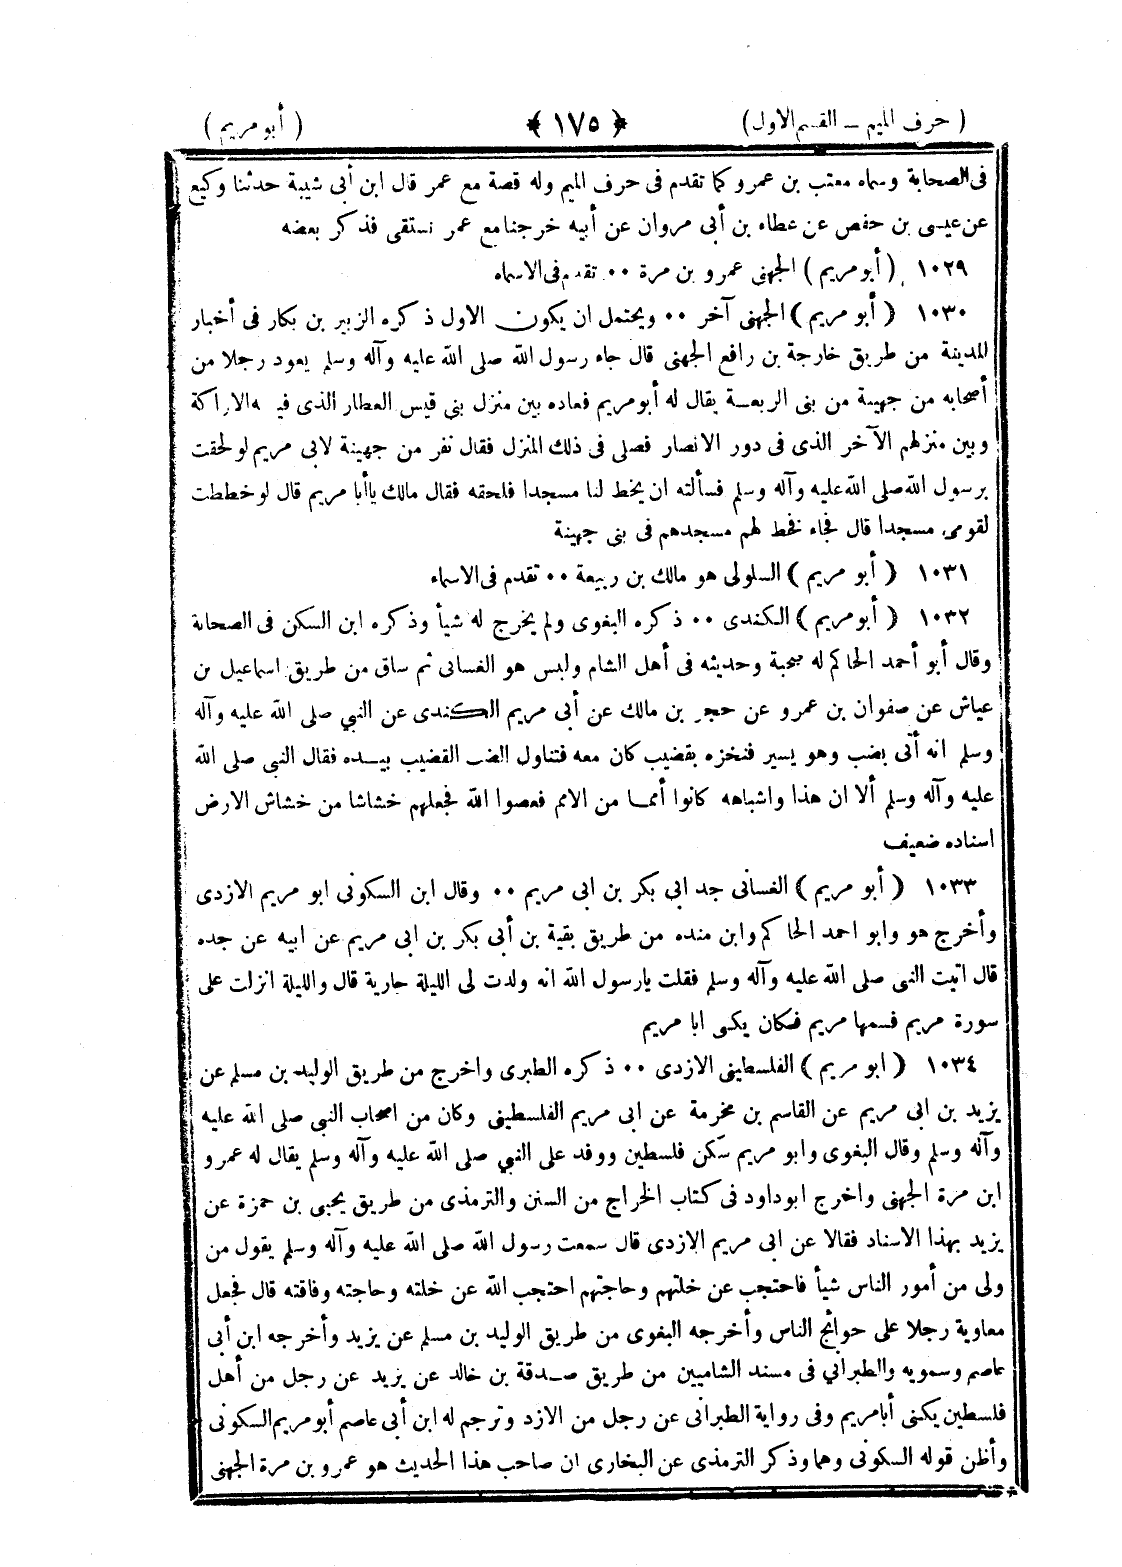 ( حرف الميم ــ القسم الاول ) ﴿ ١٧٥ ﴾ ( أبو مريم )
فى الصحابة وسماه معتب بن عمرو كما تقدم فى حرف الميم وله قصة مع عمر قال ابن أبى شيبة حدثنا وكيع
عن عيسى بن حفص عن عطاء بن أبى مروان عن أبيه خرجنا مع عمر نستقى فذكر بعضه
١٠٢٩ ( أبو مريم ) الجهنى عمرو بن مرة ٠٠ تقدم فى الاسماء
١٠٣٠ ( أبو مريم ) الجهنى آخر ٠٠ ويحتمل ان يكون الاول ذكره الزبير بن بكار فى أخبار
المدينة من طريق خارجة بن رافع الجهنى قال جاء رسول الله صلى الله عليه وآله وسلم يعود رجلا من
أصحابه من جهينة من بنى الربعـة يقال له أبو مريم فعاده بين منزل بنى قيس العطار الذى فيه الاراكة
وبين منزلهم الآخر الذى فى دور الانصار فصلى فى ذلك المنزل فقال نفر من جهينة لابى مريم لو لحقت
برسول الله صلى الله عليه وآله وسلم فسألته ان يخط لنا مسجدا فلحقه فقال مالك ياأبا مريم قال لو خططت
لقومى مسجدا قال فجاء فخط لهم مسجدهم فى بنى جهينة
١٠٣١ ( أبو مريم ) السلولى هو مالك بن ربيعة ٠٠ تقدم فى الاسماء
١٠٣٢ ( أبو مريم ) الكندى ٠٠ ذكره البغوى ولم يخرج له شيأ وذكره ابن السكن فى الصحابة
وقال أبو أحمد الحاكم له صحبة وحديثه فى أهل الشام وليس هو الغسانى ثم ساق من طريق اسماعيل بن
عياش عن صفوان بن عمرو عن حجر بن مالك عن أبى مريم الكندى عن النبي صلى الله عليه وآله
وسلم انه أتى بضب وهو يسير فنخزه بقضيب كان معه فتناول الضب القضيب بيـده فقال النبى صلى الله
عليه وآله وسلم ألا ان هذا واشباهه كانوا أممـا من الامم فعصوا الله فجعلهم خشاشا من خشاش الارض
اسناده ضعيف
١٠٣٣ ( أبو مريم ) الغسانى جد ابى بكر بن ابى مريم ٠٠ وقال ابن السكونى ابو مريم الازدى
وأخرج هو وابو احمد الحاكم وابن منده من طريق بقية بن أبى بكر بن ابى مريم عن ابيه عن جده
قال اتيت النبى صلى الله عليه وآله وسلم فقلت يارسول الله انه ولدت لى الليلة جارية قال والليلة انزلت على
سورة مريم فسمها مريم فكان يكنى ابا مريم
١٠٣٤ ( ابو مريم ) الفلسطينى الازدى ٠٠ ذكره الطبرى واخرج من طريق الوليد بن مسلم عن
يزيد بن ابى مريم عن القاسم بن مخرمة عن ابى مريم الفلسطينى وكان من اصحاب النبى صلى الله عليه
وآله وسلم وقال البغوى وابو مريم سكن فلسطين ووفد على النبي صلى الله عليه وآله وسلم يقال له عمرو
ابن مرة الجهنى واخرج ابو داود فى كتاب الخراج من السنن والترمذى من طريق يحيى بن حمزة عن
يزيد بهذا الاسناد فقالا عن ابى مريم الازدى قال سمعت رسول الله صلى الله عليه وآله وسلم يقول من
ولى من أمور الناس شيأ فاحتجب عن خلتهم وحاجتهم احتجب الله عن خلته وحاجته وفاقته قال فجعل
معاوية رجلا على حوائج الناس وأخرجه البغوى من طريق الوليد بن مسلم عن يزيد وأخرجه ابن أبى
عاصم وسمويه والطبرانى فى مسند الشاميين من طريق صـدقة بن خالد عن يزيد عن رجل من أهل
فلسطين يكنى أبا مريم وفى رواية الطبرانى عن رجل من الازد وترجم له ابن أبى عاصم أبو مريم السكونى
وأظن قوله السكونى وهما وذكر الترمذى عن البخارى ان صاحب هذا الحديث هو عمرو بن مرة الجهنى